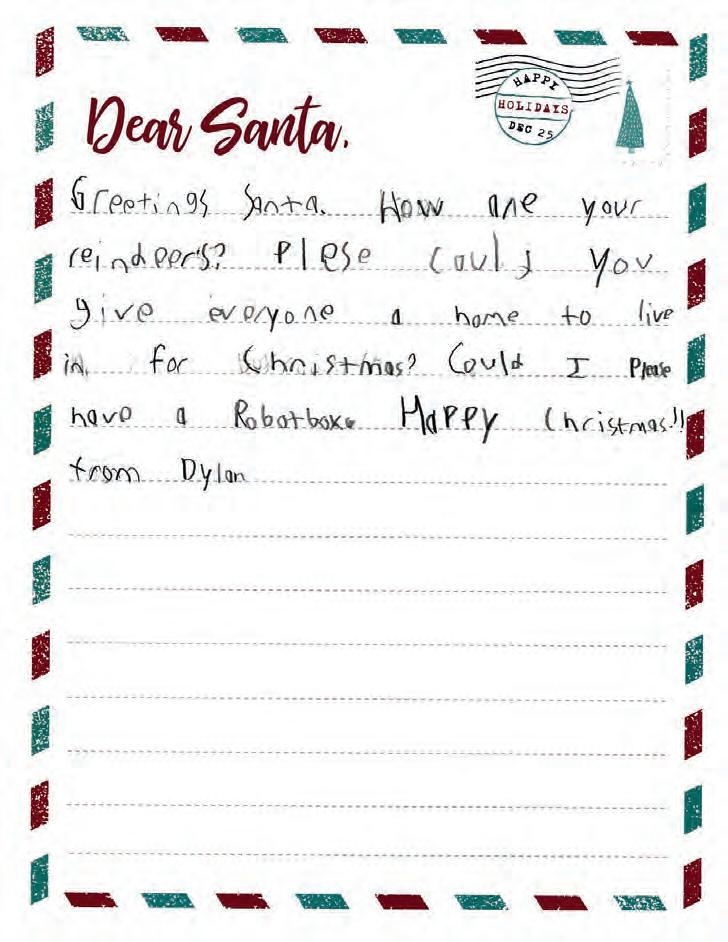 HAPPY
HOLIDAYS
DEC 25
Dear Santa,
Greetings Santa. How are your
reindeers? Plese could you
give everyone a home to live
in for Christmas? Could I Please
have a Robotboxe Happy Christmas!!
from Dylan